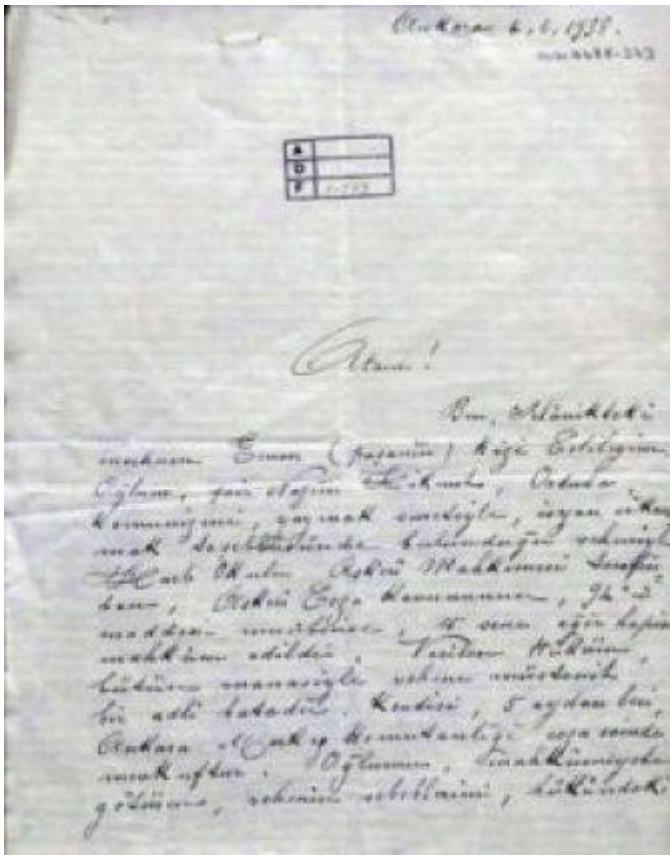 Ankara 6, 6, 1938.
A
D
F
Atam!
Ben, Selânikteki
merhum Enver (paşanın) kızı
Oğlum, şair Nazım Hikmet, Orduda
Komunizmi, yaymak suretiyle, isyan
mak teşebbüsünde bulunduğu vehmiyle
Harb Okulu Askeri Mahkemesi
dan, Askeri Ceza Kanununun, 94'üncü
maddesi mucibince, 15 sene ağır hapse
mahkûm edildi. Verilen Hüküm,
bütün manasiyle vehme müstenit
bir adli hatadır. Kendisi, 5 aydan beri
Ankara komutanlığı ceza evinde
mevkuftur. Oğlumun, mahkûmiyete
götüren, vehmin sebeblerini,